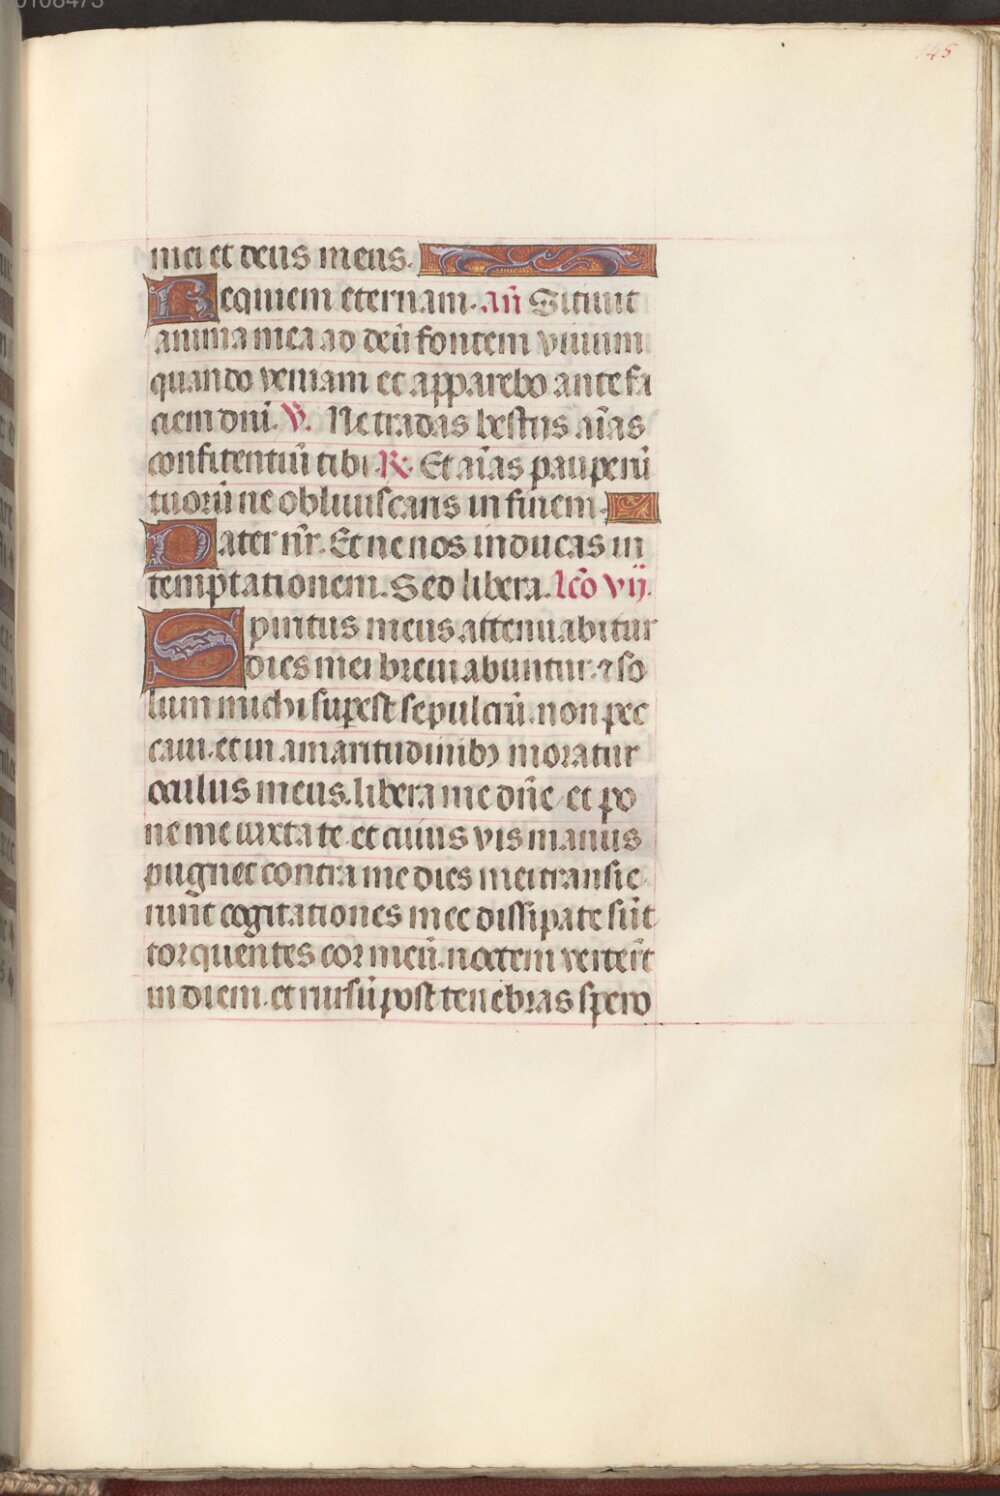 145
mei et deus meus.
Requiem eternam. an̄ Sitiuit
anima mea ad deū fontem viuum
quando veniam et apparebo ante fa
ciem dn̄i. V. Ne tradas bestijs aīas
confitentiū tibi. R. Et aīas pauperū
tuorū ne obliuiscaris in finem.
Pater nr̄. Et ne nos inducas in
temptationem. Sed libera. lcō vij.
Spiritus meus attenuabitur
dies mei breuiabuntur. ⁊ so
lum michi superest sepulcrū. non pec
caui. et in amaritudinibꝫ moratur
oculus meus. libera me dn̄e et po
ne me iuxta te. et cuius vis manus
pugnet contra me dies mei transie
runt cogitationes mee dissipate sūt
torquentes cor meū. noctem vertert̄
in diem. et rursū post tenebras spero